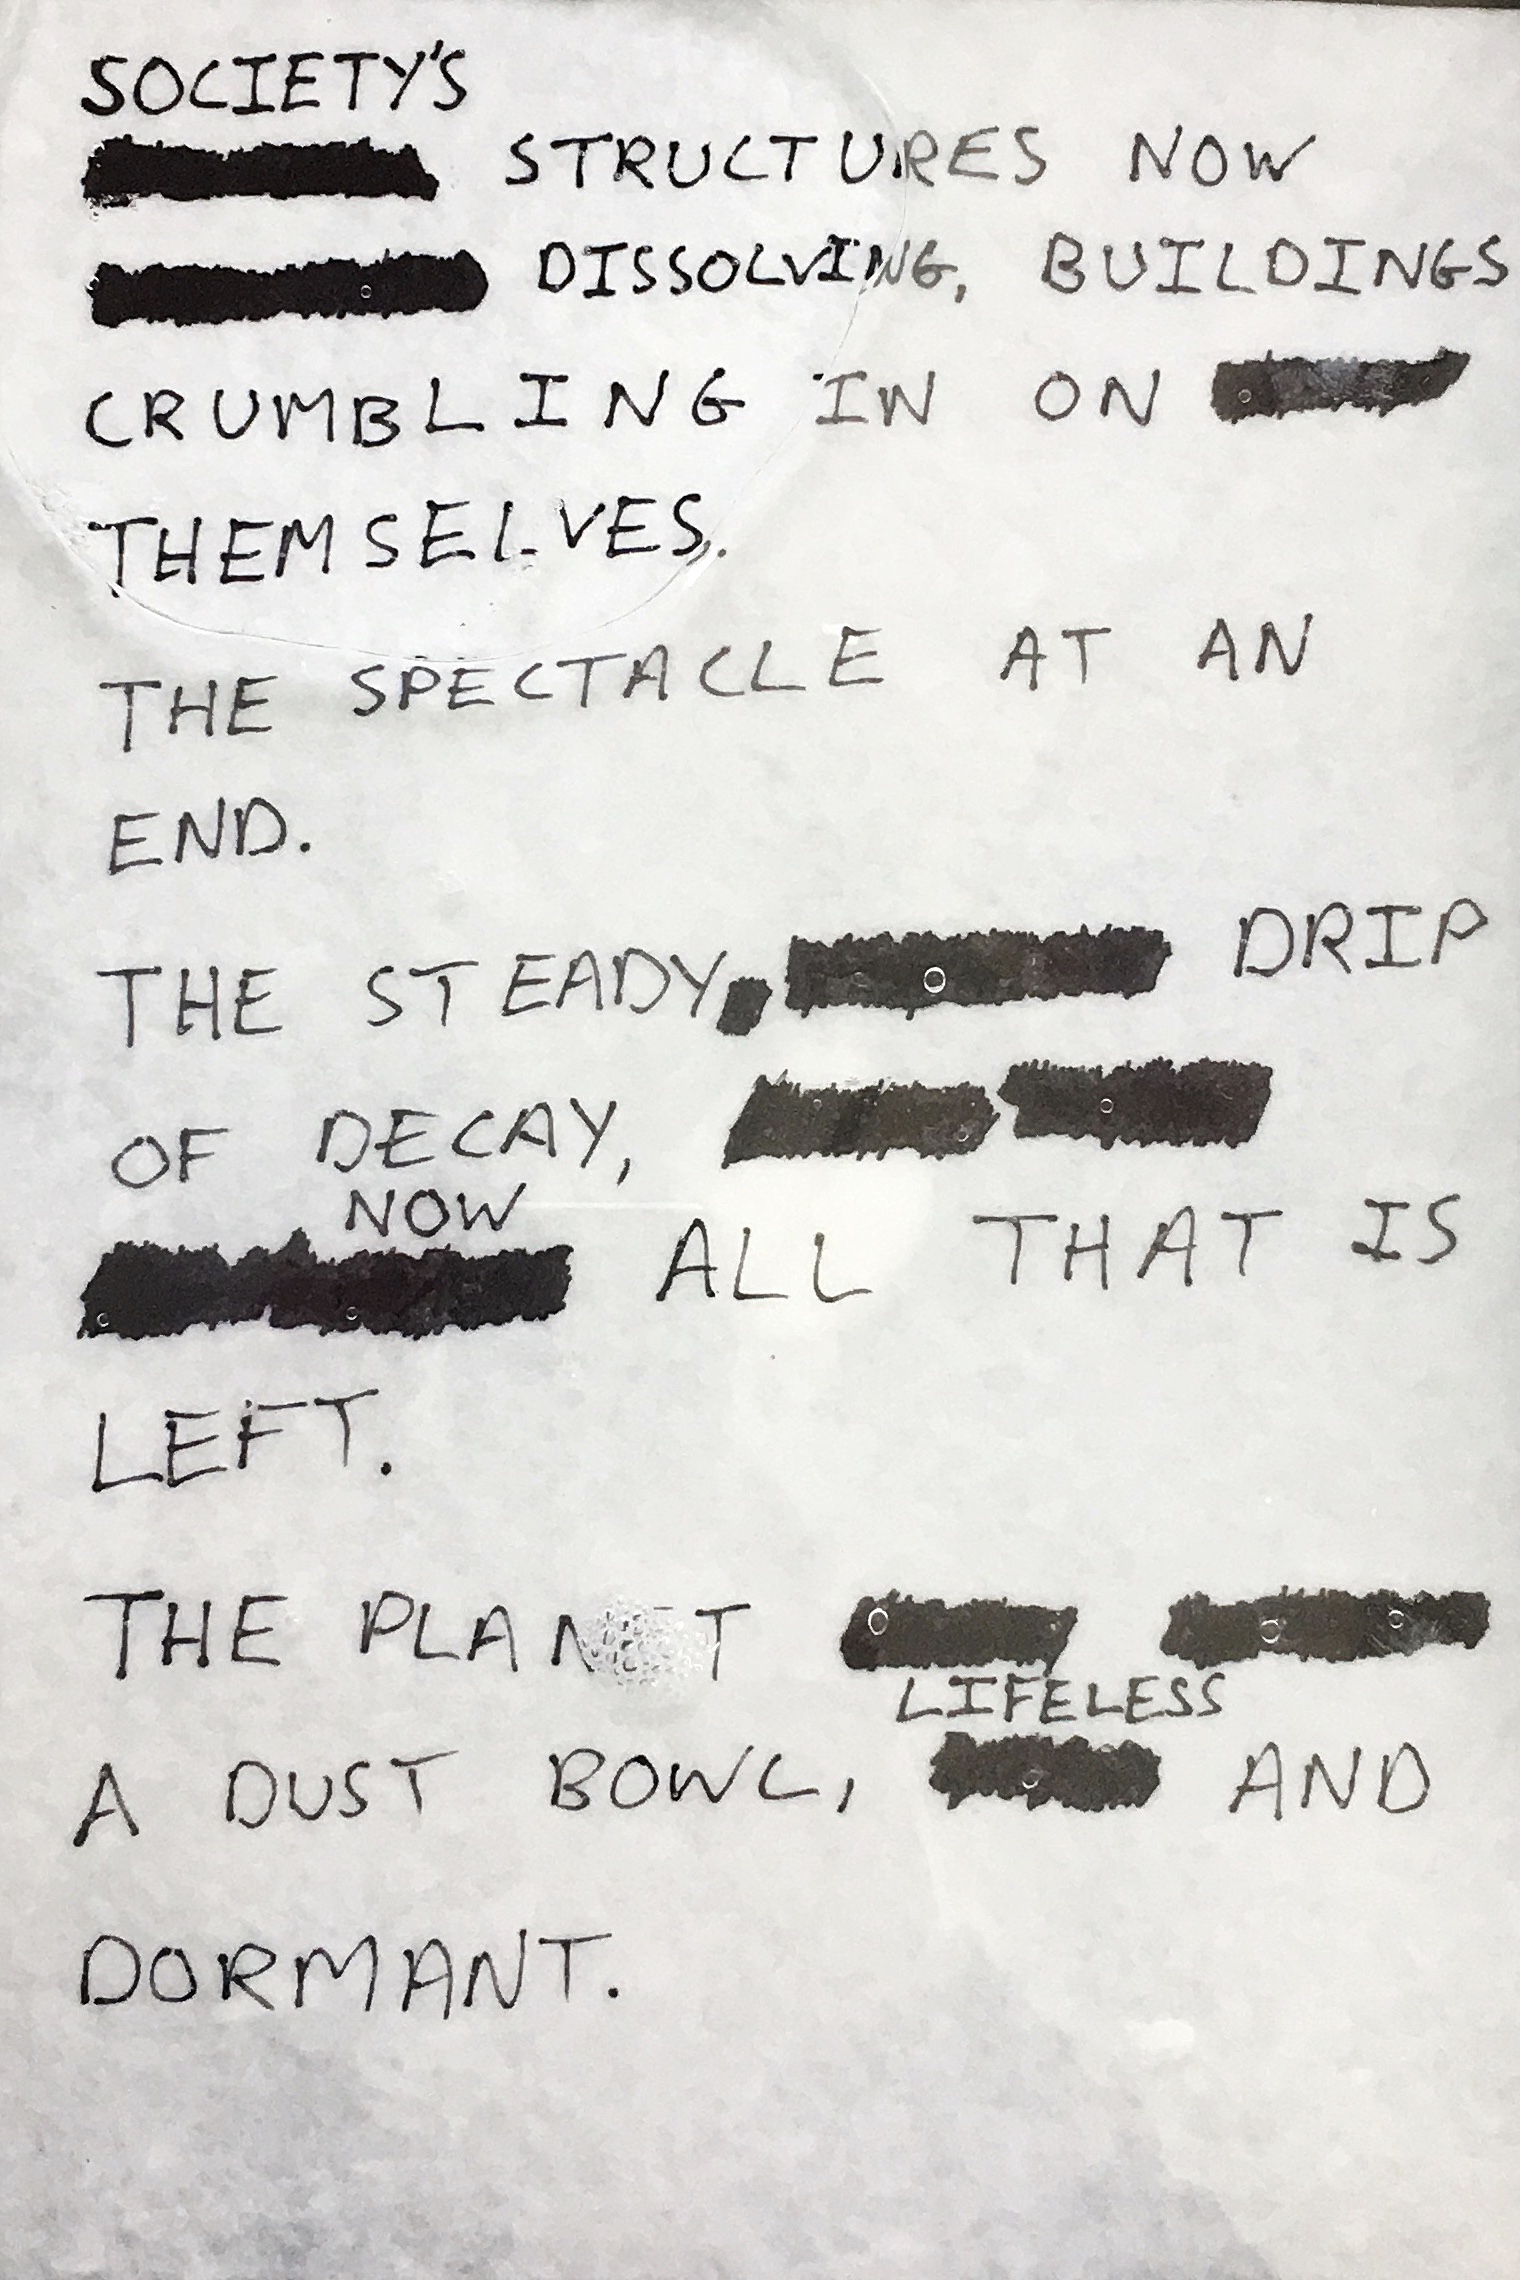 SOCIETY'S
STRUCTURES NOW
DISSOLVING, BUILDINGS
CRUMBLING IN ON
THEMSELVES.
THE SPECTACLE AT AN
END.
THE STEADY, DRIP
OF DECAY,
NOW
ALL THAT IS
LEFT.
THE PLANET
LIFELESS
A DUST BOWL, AND
DORMANT.